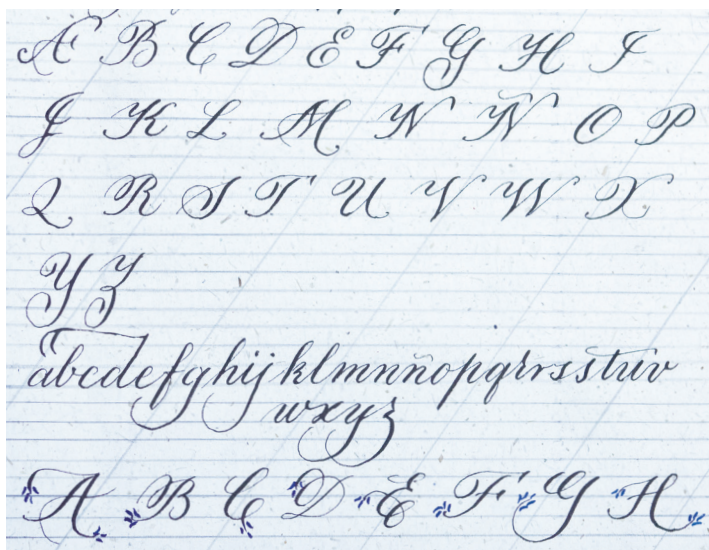 A B C D E F G H I
J K L M N Ñ O P
Q R S T U V W X
Y Z
abcdefghijklmnñopqrrsstuv
wxyz
A B C D E F G H